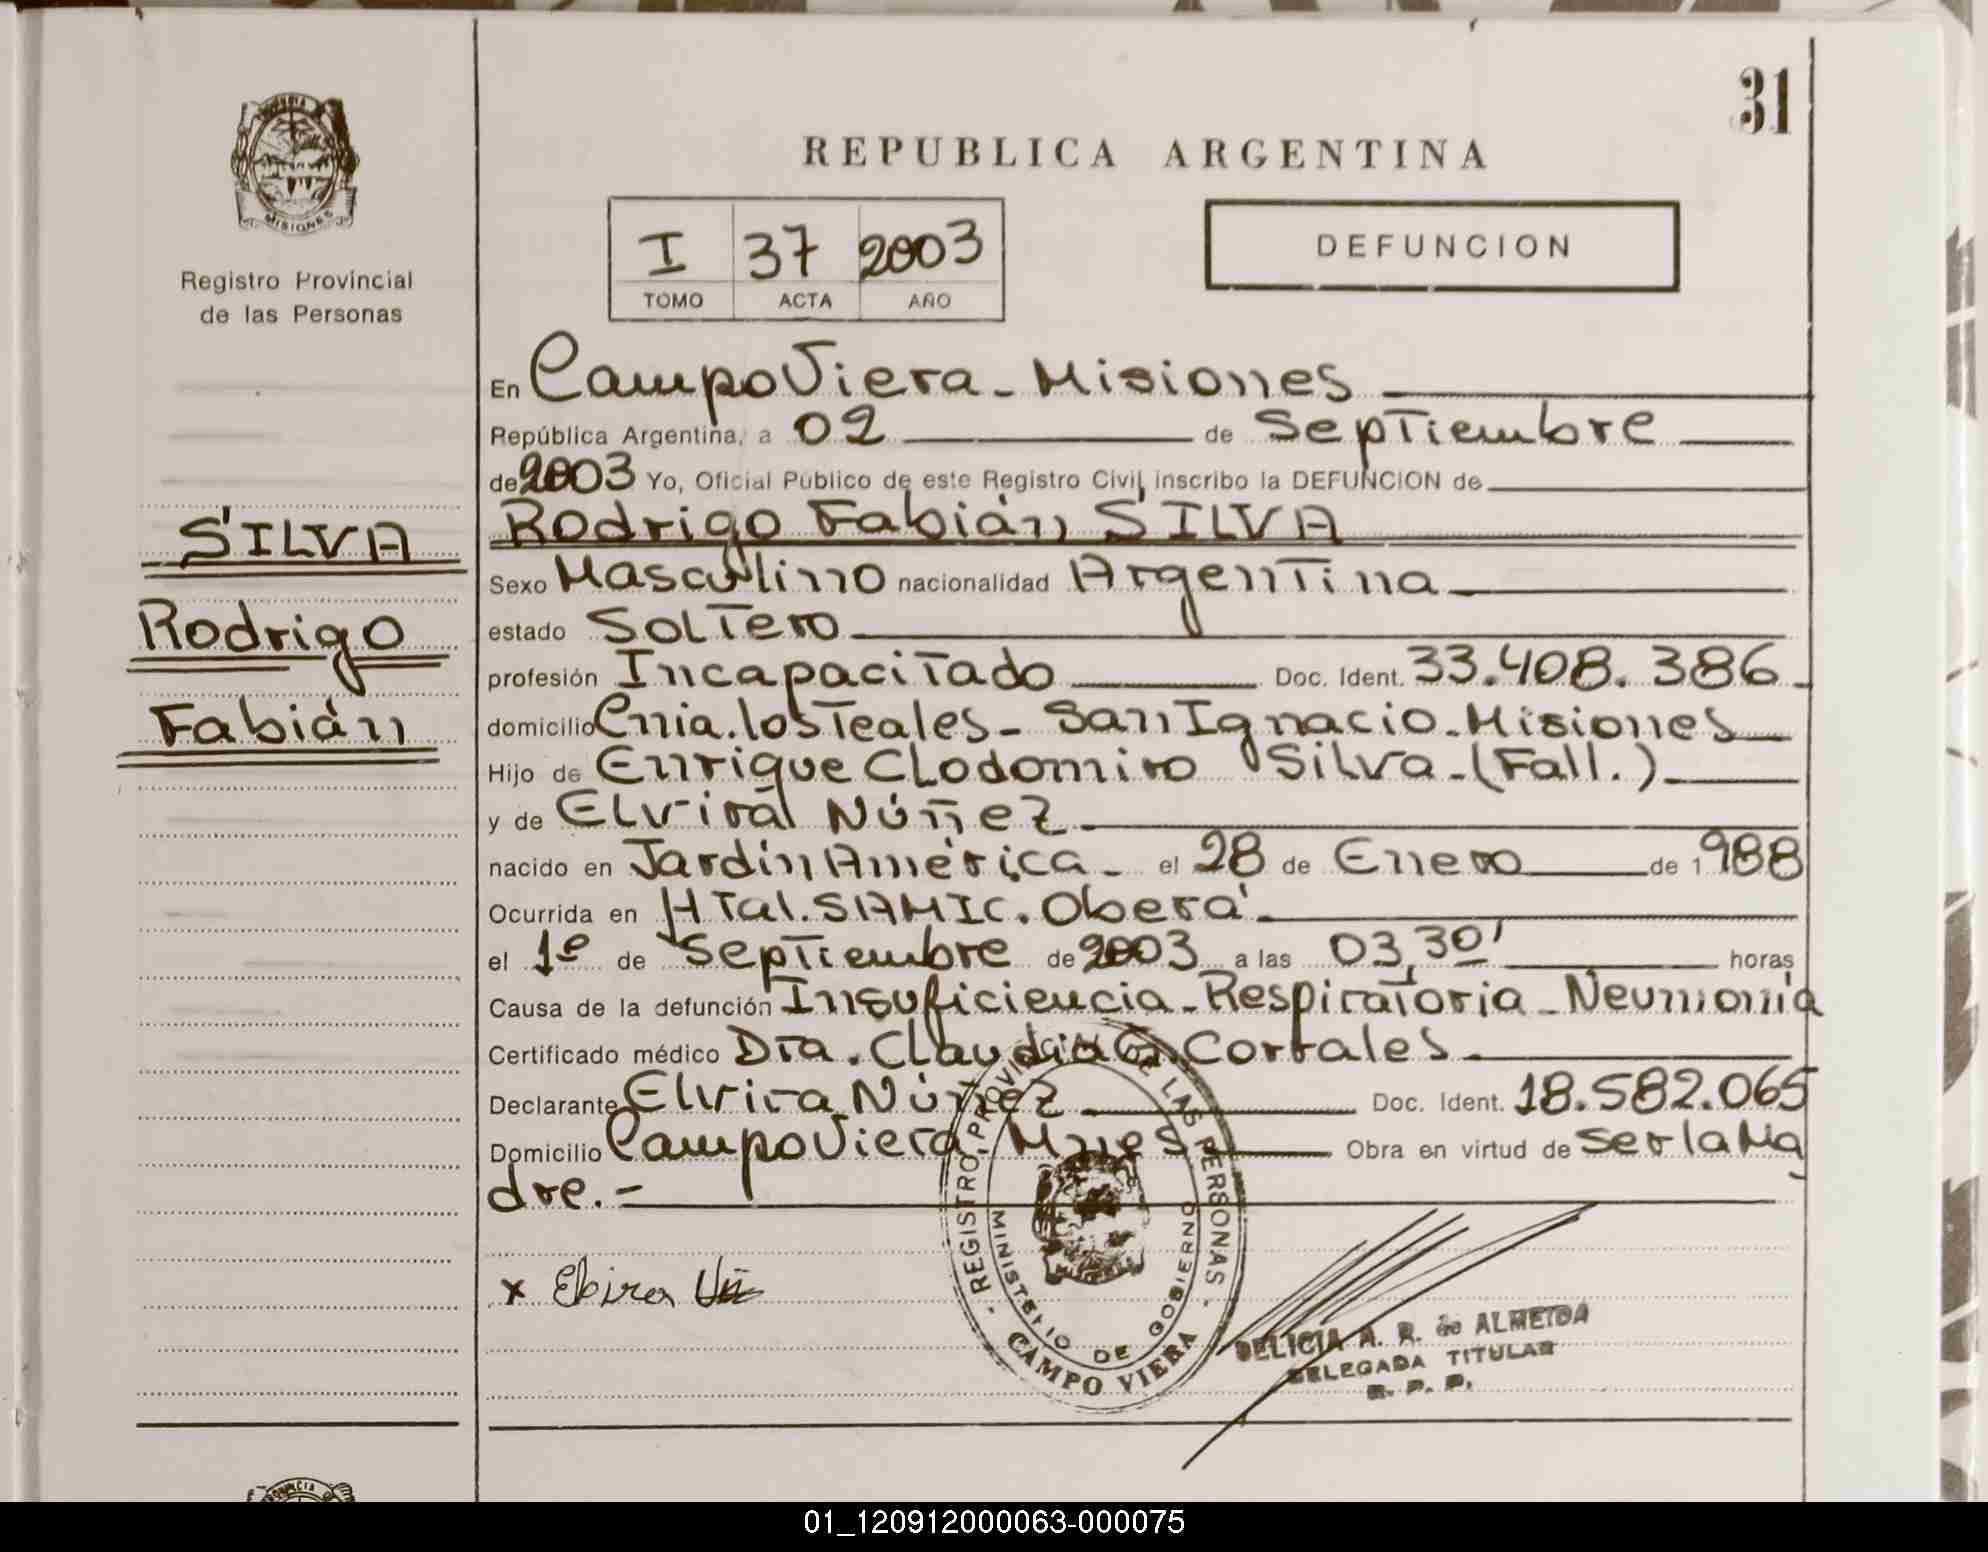 31
REPUBLICA ARGENTINA
MISIONES
Registro Provincial
de las Personas
I 37 2003
TOMO ACTA AÑO
DEFUNCION
En Campo Viera - Misiones
República Argentina, a 02 de Septiembre
de 2003 Yo, Oficial Público de este Registro Civil, inscribo la DEFUNCION de
SILVA
Rodrigo
Fabián
Rodrigo Fabián SILVA
Sexo Masculino nacionalidad Argentina
estado Soltero
profesión Incapacitado Doc. Ident. 33.408.386
domicilio Cnia. los Teales - San Ignacio - Misiones
Hijo de Enrique Clodomiro Silva - (Fall.)
y de Elvira Núñez
nacido en Jardín América - el 28 de Enero de 1988
Ocurrida en HTal. SAMIC. Oberá
el 1º de Septiembre de 2003 a las 03,30' horas
Causa de la defunción Insuficiencia - Respiratoria - Neumonía
Certificado médico Dra. Claudia G. Corrales
Declarante Elvira Núñez Doc. Ident. 18.582.065
Domicilio Campo Viera - Mnes Obra en virtud de ser la Ma
dre.-
x Elvira
REGISTRO PROVINCIAL DE LAS PERSONAS
MINISTERIO DE GOBIERNO
CAMPO VIERA
DELICIA A. R. de ALMEIDA
DELEGADA TITULAR
R. P. P.
01_120912000063-000075